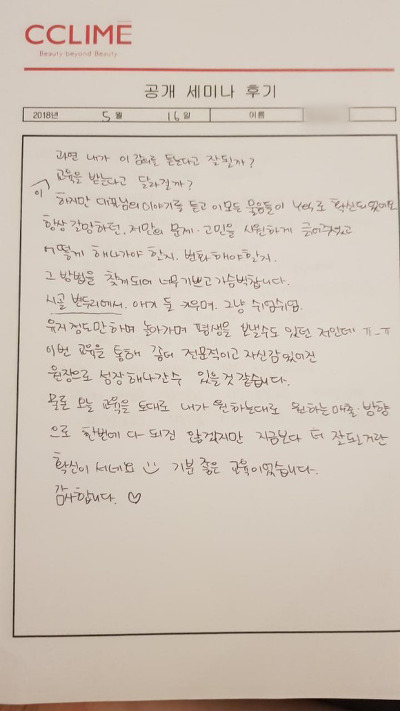 CCLIMĒ
Beauty beyond Beauty
공개 세미나 후기
2018년 5 월 16 일 이름
과연 내가 이 강의로 듣는다고 잘될까?
이 교육을 받는다고 달라질까?
하지만 대표님의 이야기를 듣고 이 모든 물음들이 Yes로 확신되었어요
항상 갈망하던, 저만의 문제·고민을 시원하게 긁어주셨고
어떻게 해나가야 할지, 변화해야할지.
그 방법을 찾게되어 너무 기쁘고 가슴벅찹니다.
시골 변두리에서. 애기 둘 키우며. 그냥 쉬엄쉬엄
유지정도만하며 놀아가며 평생을 보낼수도 있던 저인데 ㅠ-ㅠ
이번 교육을 통해 좀더 전문적이고 자신감있어진
원장으로 성장해나갈수 있을것 같습니다.
물론 오늘 교육을 토대로 내가 원하는대로 원하는 매출·방향
으로 한번에 다 되진 않겠지만 지금보다 더 잘될거란
확신이 서네요 기분 좋은 교육이었습니다.
감사합니다. ♡